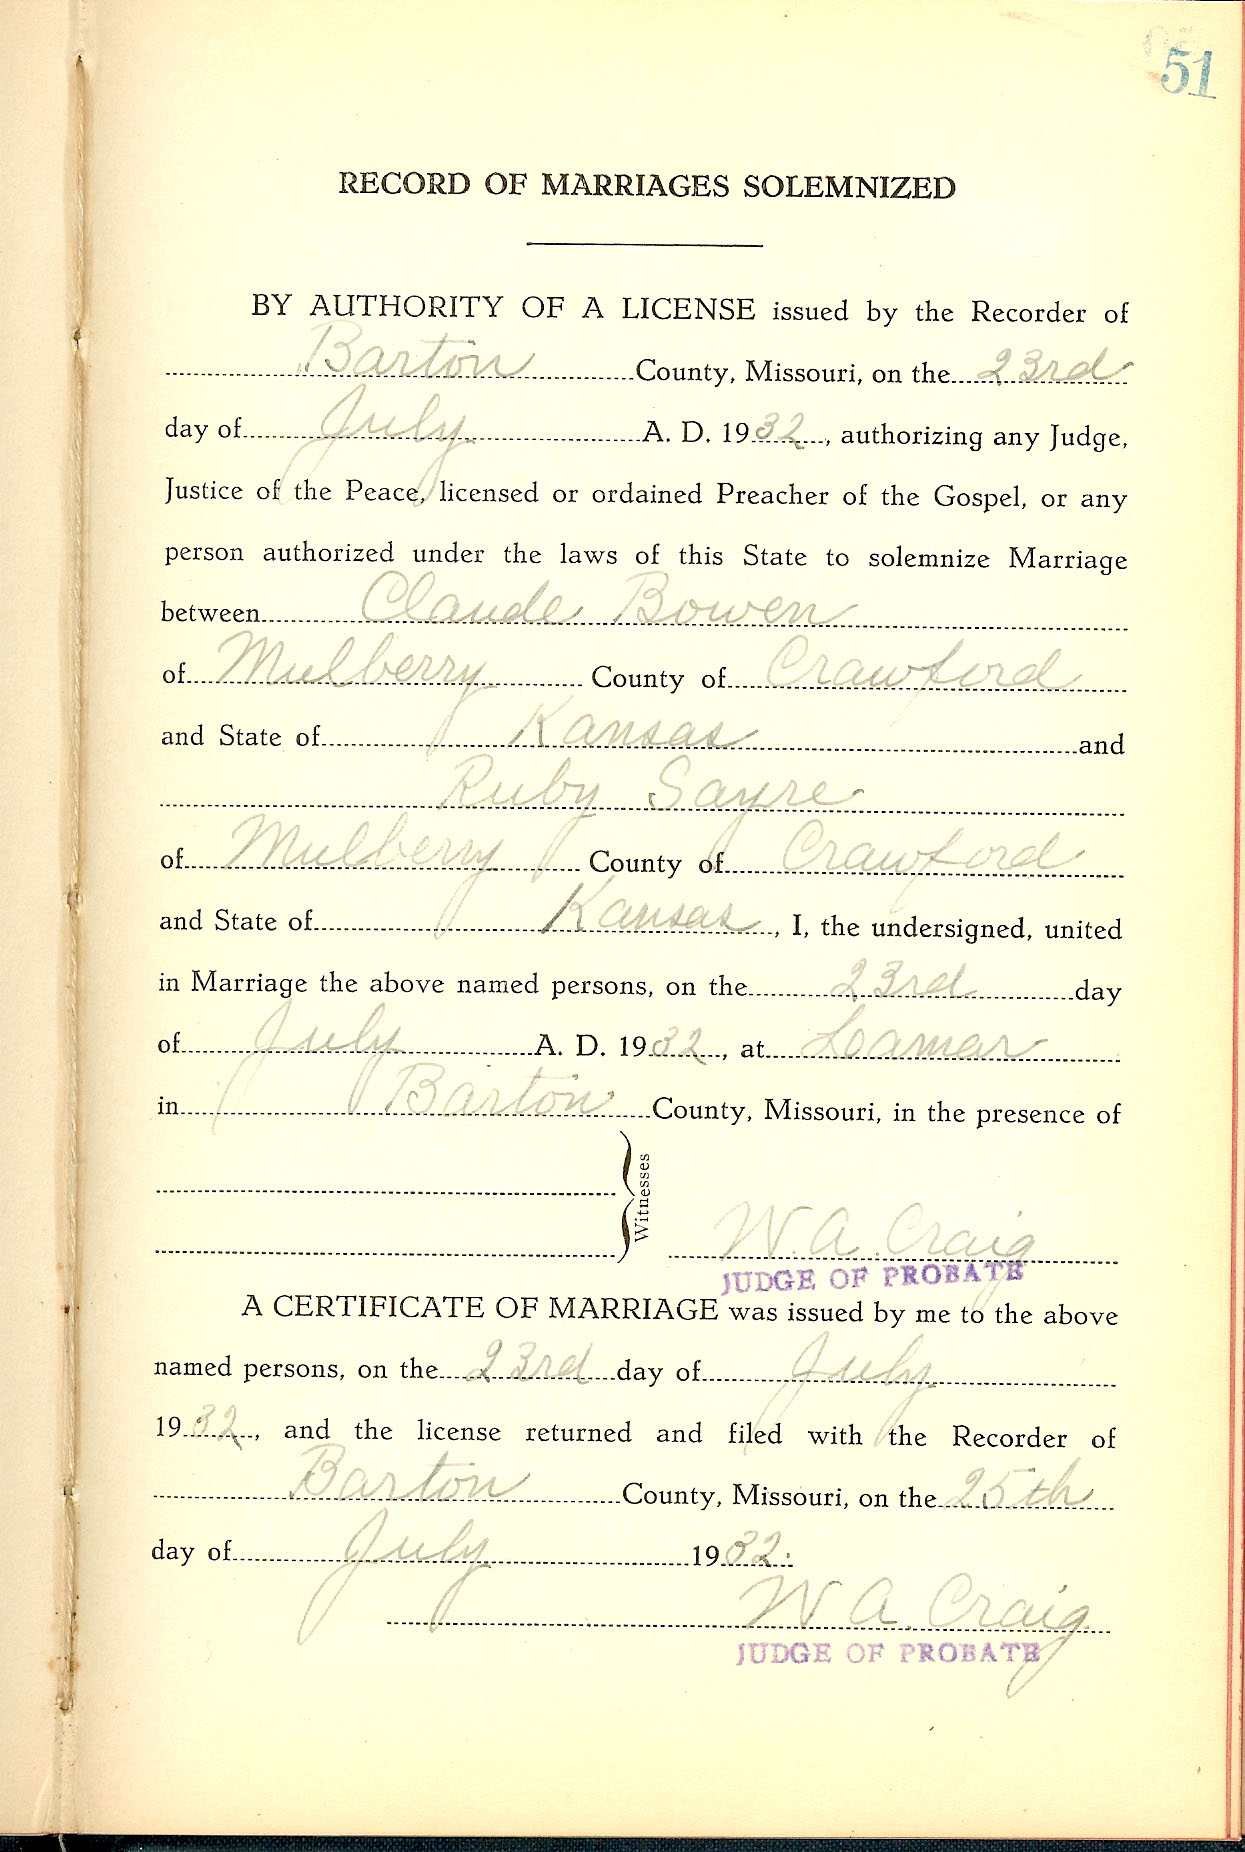 51
RECORD OF MARRIAGES SOLEMNIZED
BY AUTHORITY OF A LICENSE issued by the Recorder of
Barton County, Missouri, on the 23rd
day of July A. D. 1932, authorizing any Judge,
Justice of the Peace, licensed or ordained Preacher of the Gospel, or any
person authorized under the laws of this State to solemnize Marriage
between Claude Bowen
of Mulberry County of Crawford
and State of Kansas and
Ruby Sayre
of Mulberry County of Crawford
and State of Kansas, I, the undersigned, united
in Marriage the above named persons, on the 23rd day
of July A. D. 1932, at Lamar
in Barton County, Missouri, in the presence of
Witnesses
W. A. Craig
JUDGE OF PROBATE
A CERTIFICATE OF MARRIAGE was issued by me to the above
named persons, on the 23rd day of July
1932, and the license returned and filed with the Recorder of
Barton County, Missouri, on the 25th
day of July 1932.
W. A. Craig
JUDGE OF PROBATE